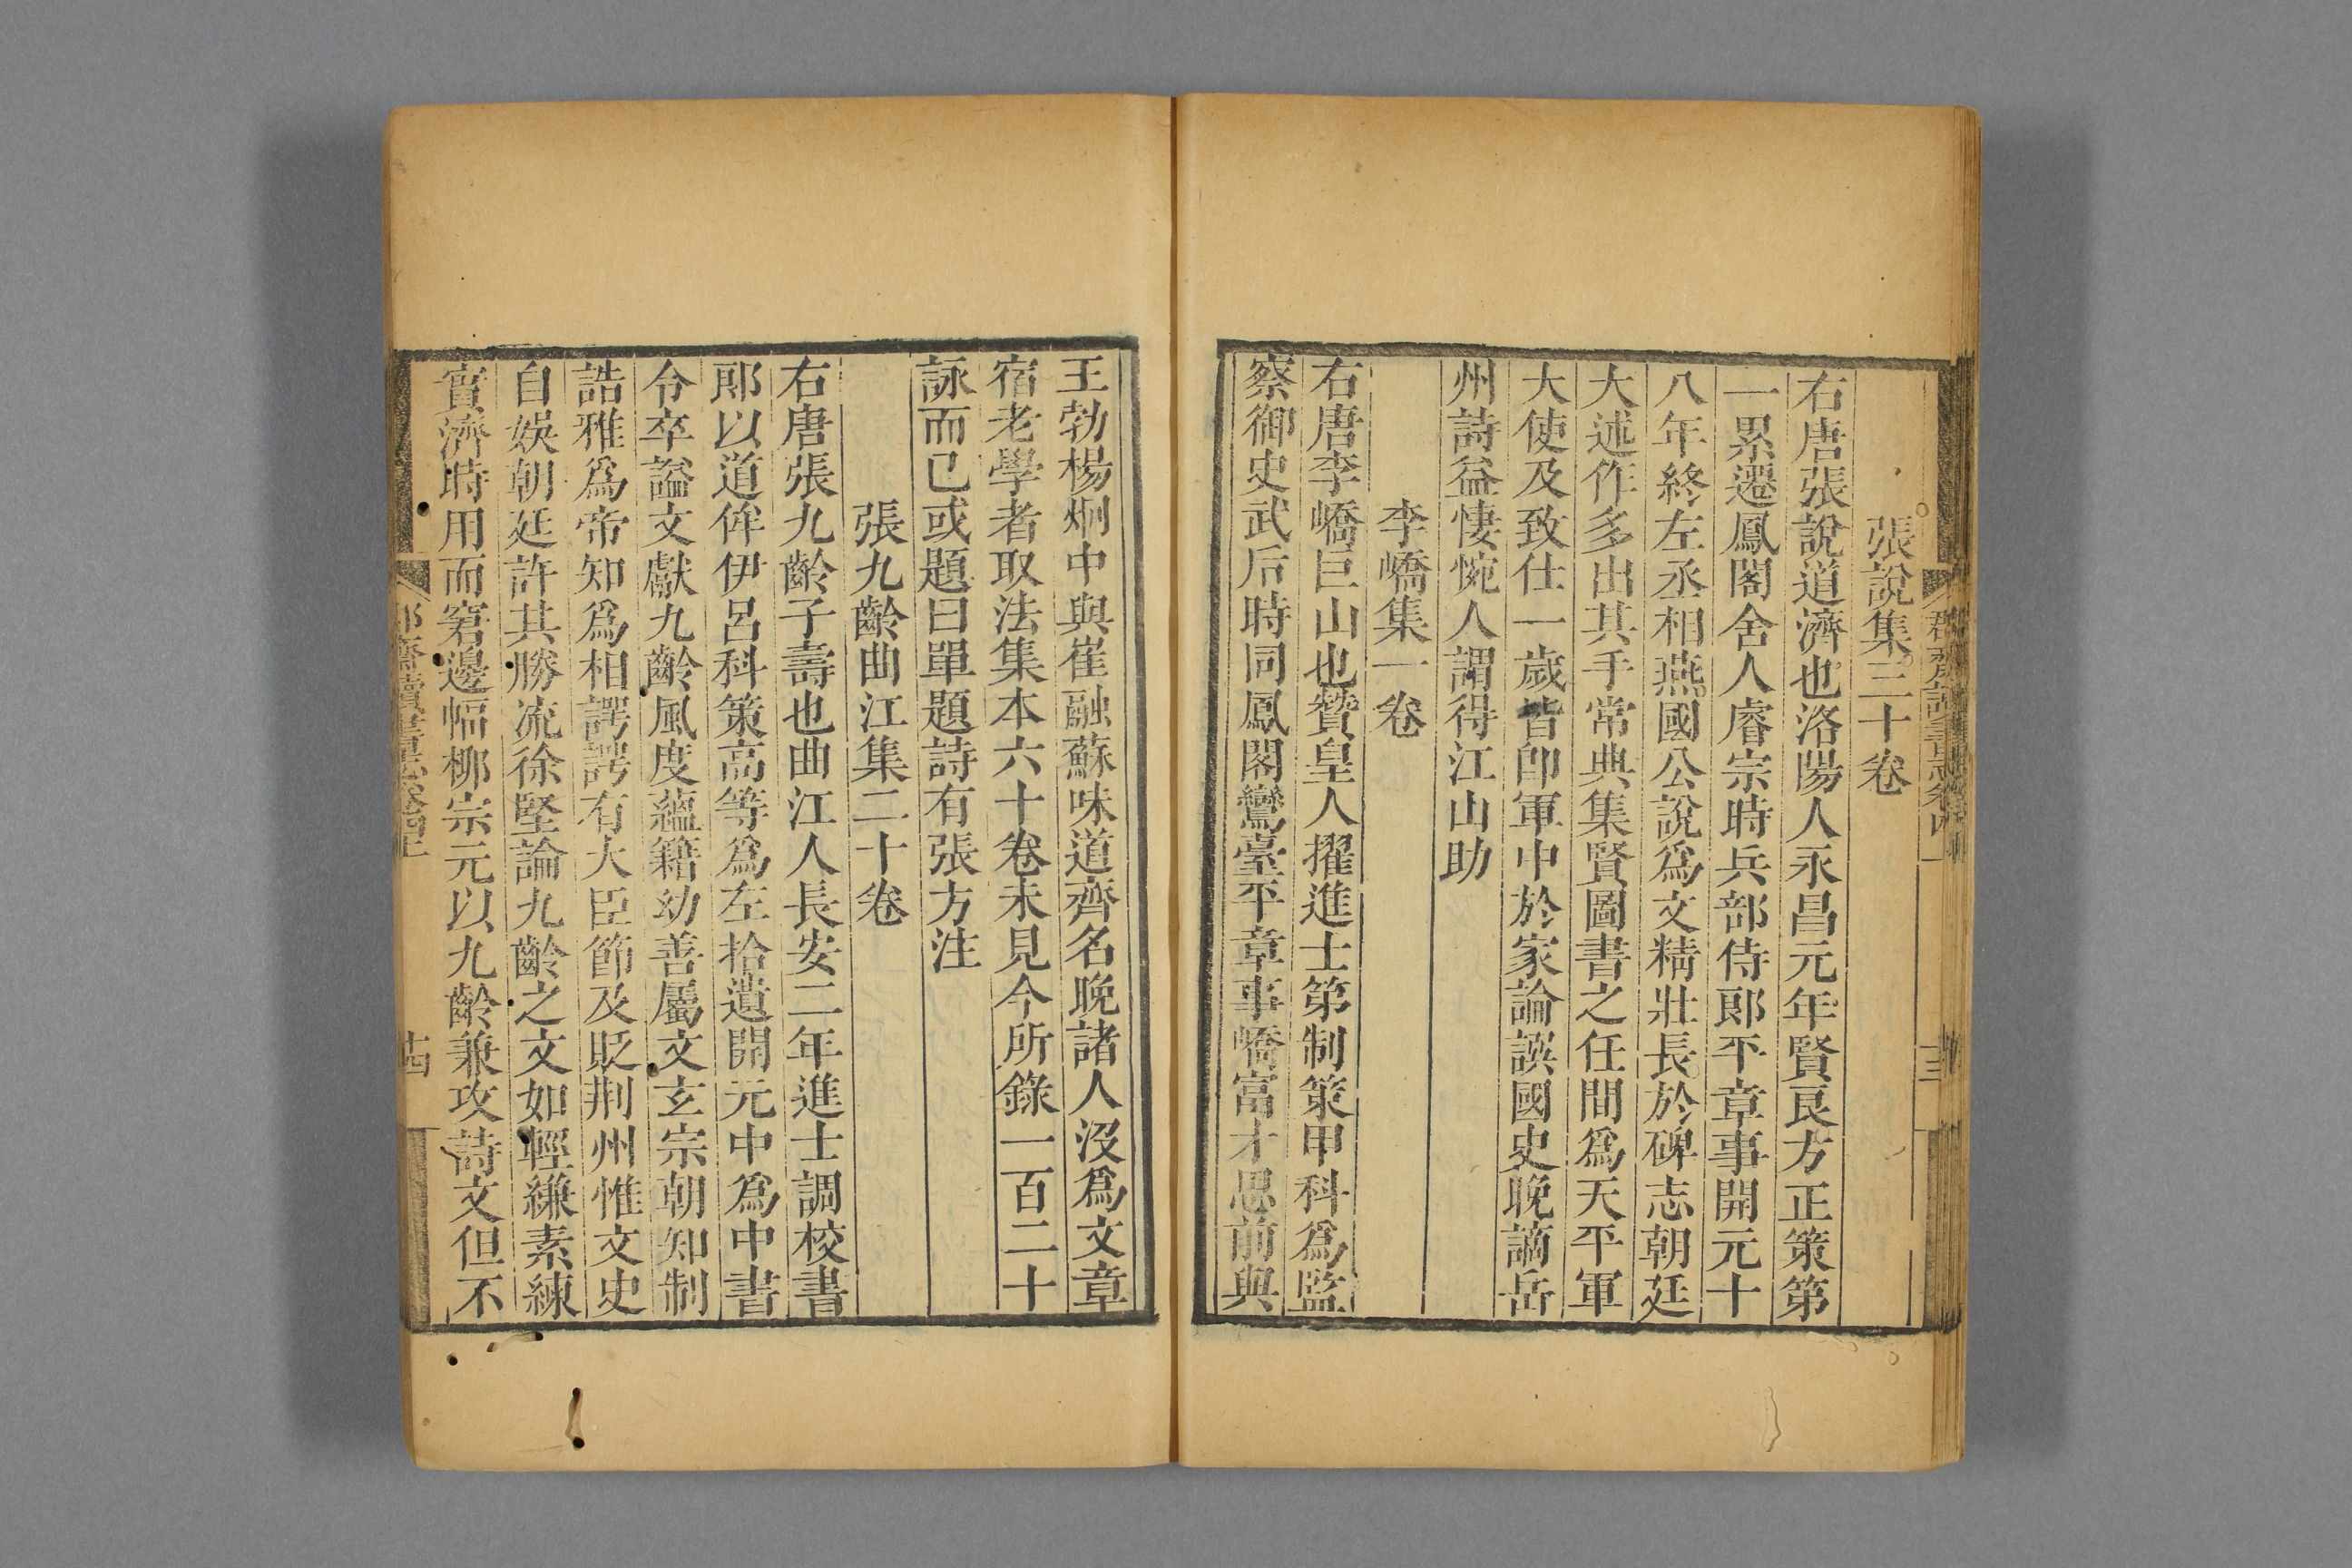 張說集三十卷
右唐張說道濟也洛陽人永昌元年賢良方正策第
一累遷鳳閣舍人睿宗時兵部侍郎平章事開元十
八年終左丞相燕國公說為文精壯長於碑志朝廷
大述作多出其手常典集賢圖書之任間為天平軍
大使及致仕一歲皆卽軍中於家論譔國史晚謫岳
州詩益悽惋人謂得江山助
李嶠集一卷
右唐李嶠巨山也贊皇人擢進士第制策甲科為監
察御史武后時同鳳閣鸞臺平章事嶠富才思前與
王勃楊炯中與崔融蘇味道齊名晚諸人沒為文章
宿老學者取法集本六十卷未見今所錄一百二十
詠而已或題曰單題詩有張方注
張九齡曲江集二十卷
右唐張九齡子壽也曲江人長安二年進士調校書
郎以道侔伊呂科策高等為左拾遺開元中為中書
令卒謚文獻九齡風度蘊籍幼善屬文玄宗朝知制
誥雅為帝知為相諤諤有大臣節及貶荆州惟文史
自娛朝廷許其勝流徐堅論九齡之文如輕縑素練
實濟時用而窘邊幅柳宗元以九齡兼攻詩文但不
齋讀書志卷四上
十四